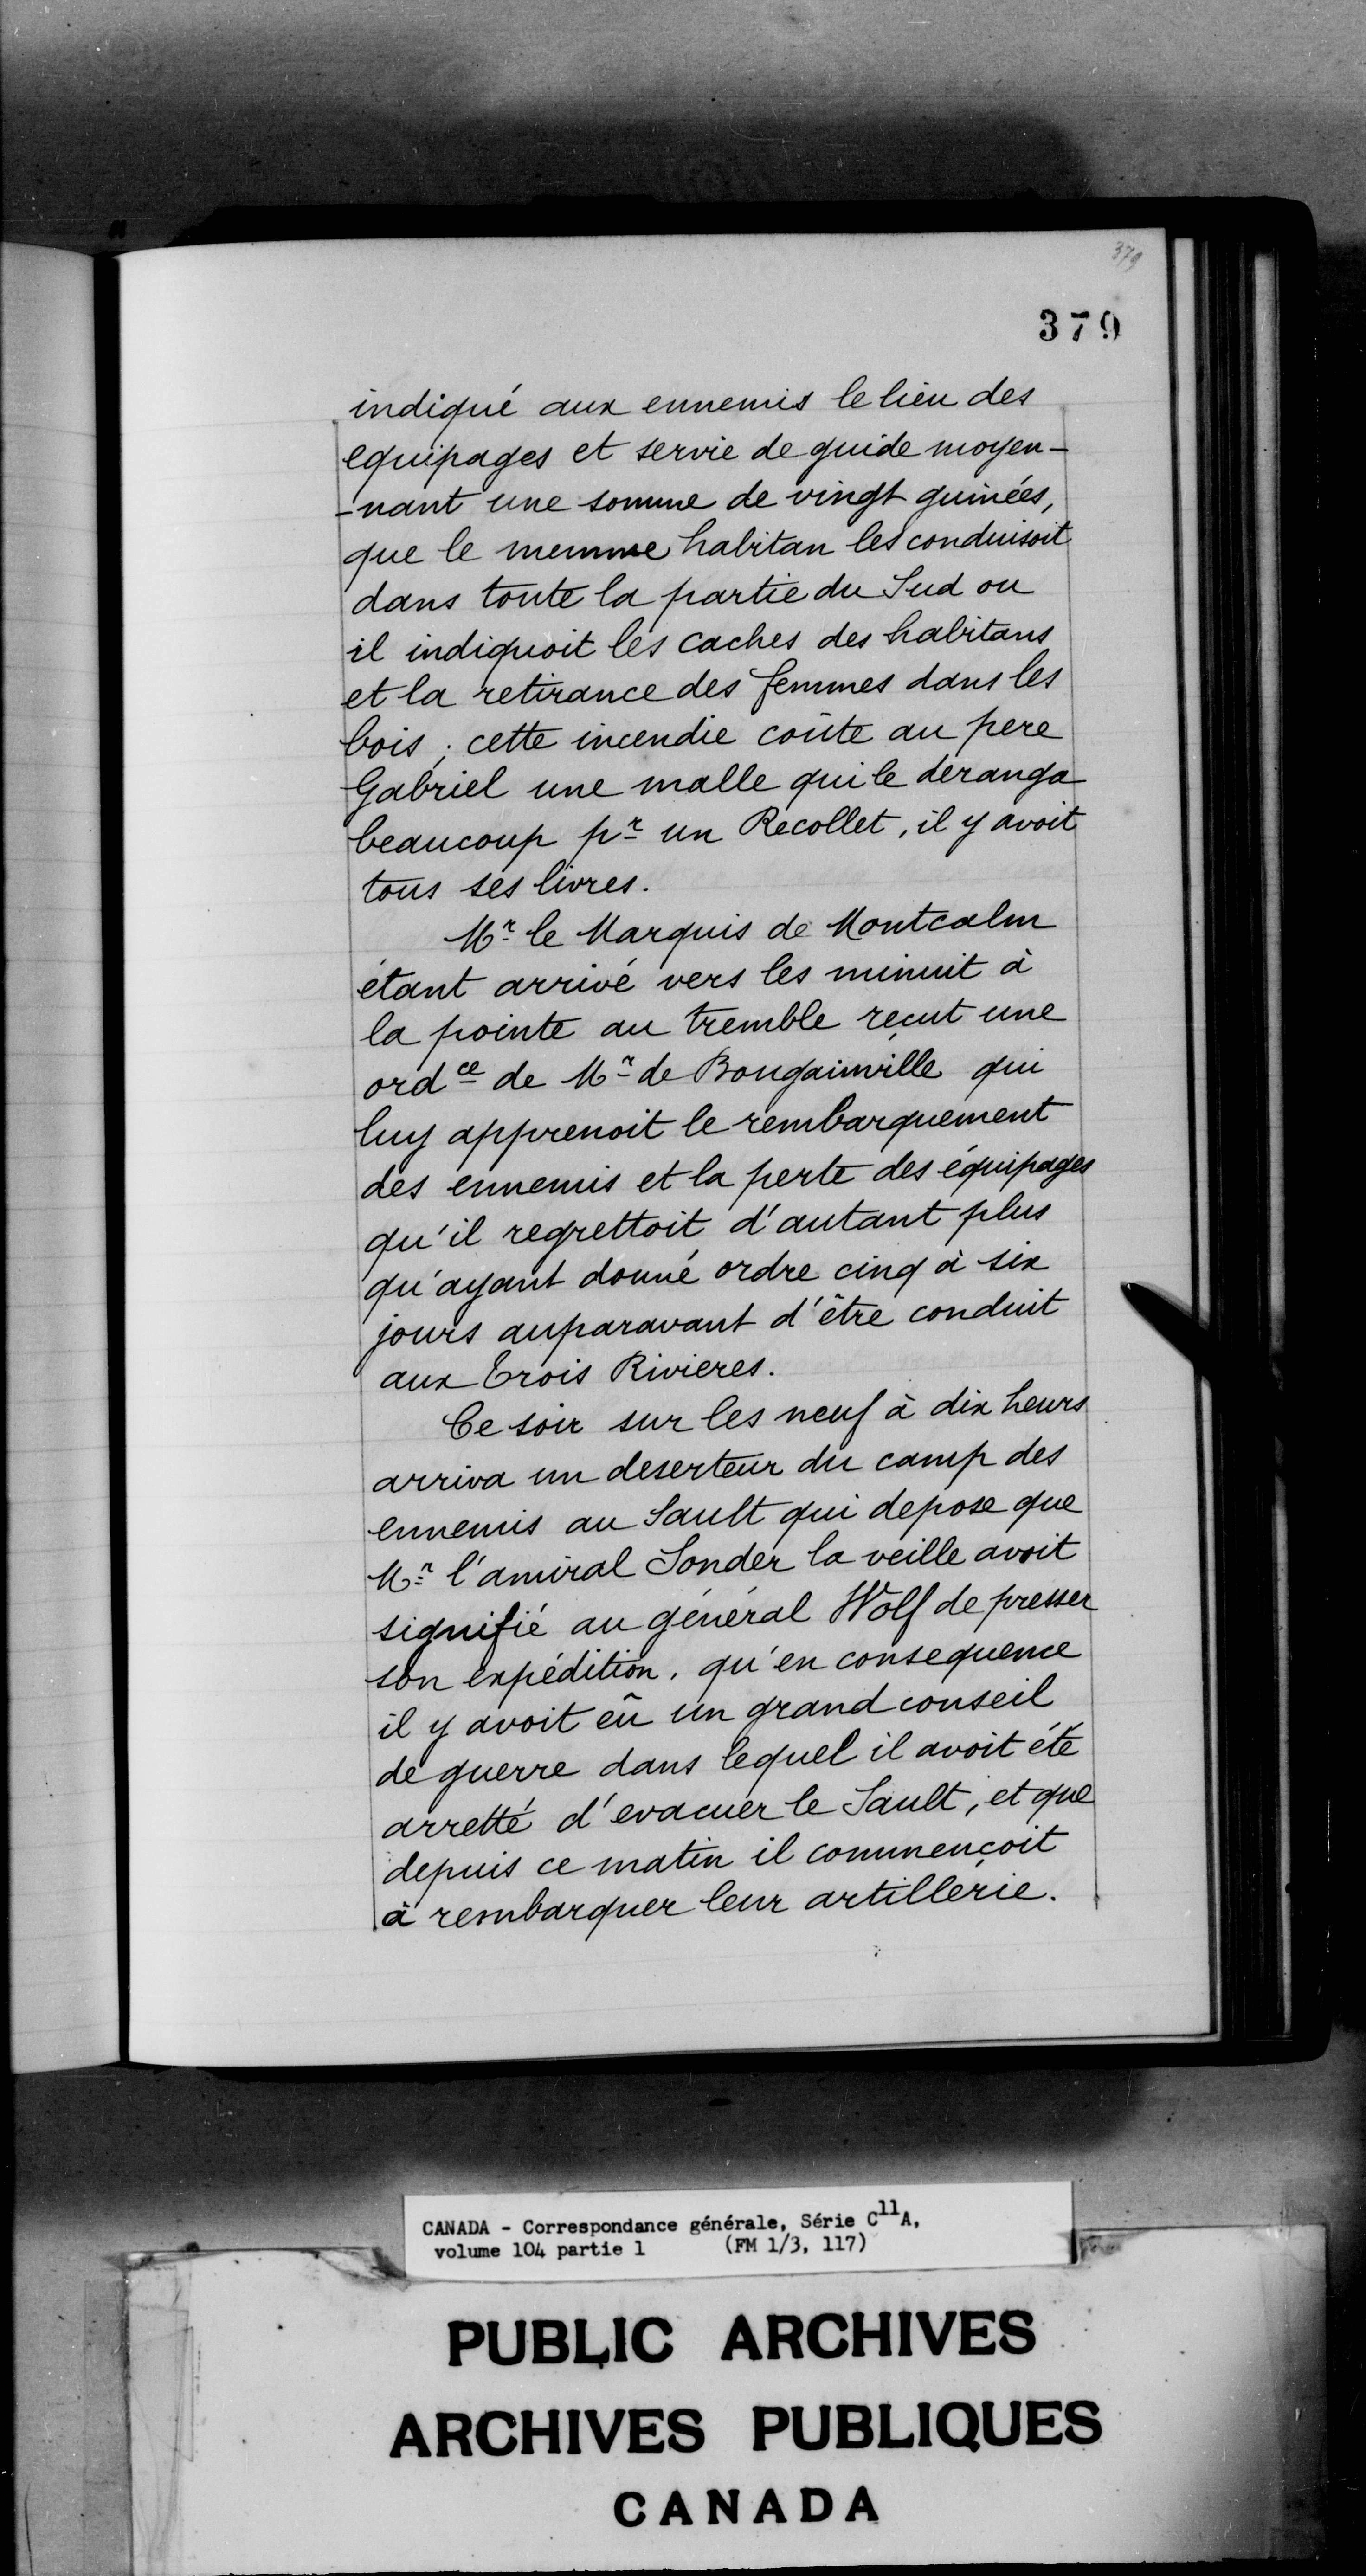 379
379
indiqué aux ennemis le lieu des
equipages et servie de guide moyen-
-nant une somme de vingt guinées,
que le memme habitan les conduisoit
dans toute la partie du Sud ou
il indiquoit les caches des habitans
et la retirance des femmes dans les
bois ; cette incendie coûte au pere
Gabriel une malle qui le déranga
beaucoup pr un Recollet, il y avoit
tous ses livres.
Mr le Marquis de Montcalm
étant arrivé vers les minuit à
la pointe au tremble reçut une
ordce de Mr de Bougainville qui
luy apprenoit le rembarquement
des ennemis et la perte des équipages
qu'il regrettoit d'autant plus
qu'ayant donné ordre cinq à six
jours auparavant d'être conduit
aux Trois Rivieres.
Ce soir sur les neuf à dix heurs
arriva un deserteur du camp des
ennemis au Sault qui depose que
Mr l'amiral Sonder la veille avoit
signifié au général Wolf de presser
son expédition, qu'en consequence
il y avoit eû un grand conseil
de guerre dans lequel il avoit été
arretté d'evacuer le Sault, et que
depuis ce matin il commençoit
à rembarquer leur artillerie.
CANADA - Correspondance générale, Série C11A,
volume 104 partie 1 (FM 1/3, 117)
PUBLIC ARCHIVES
ARCHIVES PUBLIQUES
CANADA